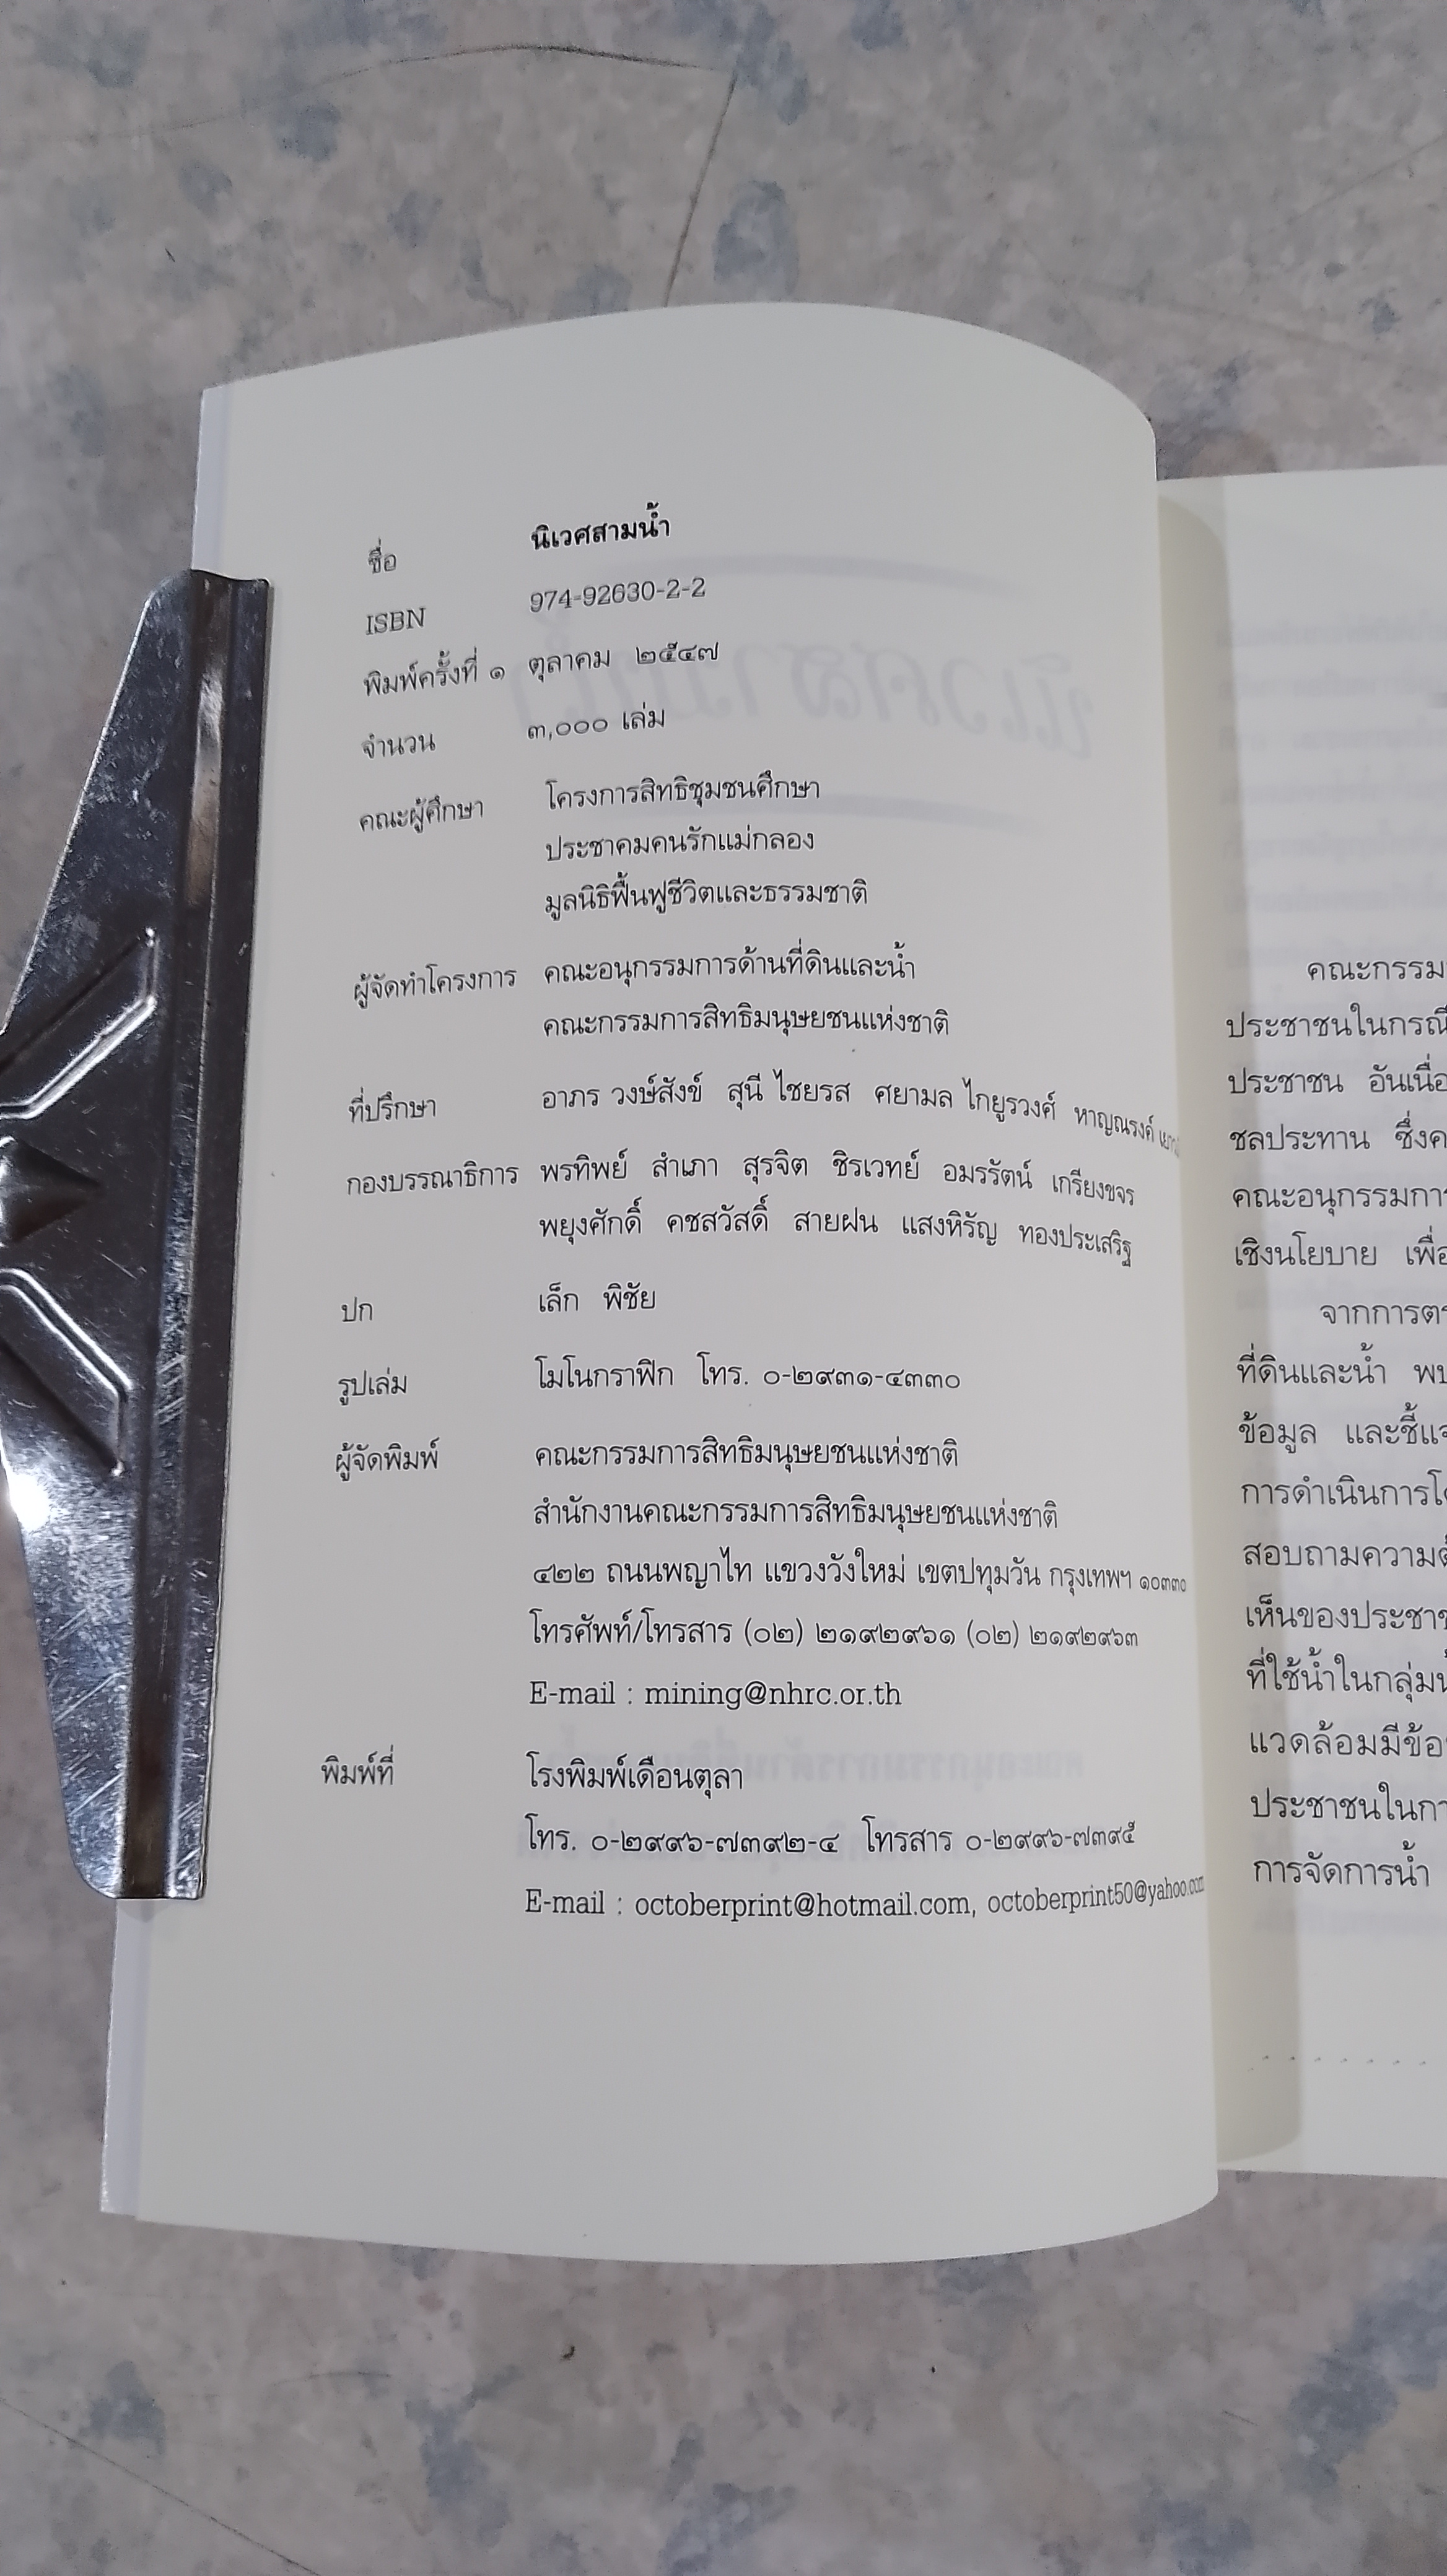 ชื่อ นิเวศสามน้ำ
ISBN 974-92630-2-2
พิมพ์ครั้งที่ ๑ ตุลาคม ๒๕๔๗
จำนวน ๓,๐๐๐ เล่ม
คณะผู้ศึกษา โครงการสิทธิชุมชนศึกษา
ประชาคมคนรักแม่กลอง
มูลนิธิฟื้นฟูชีวิตและธรรมชาติ
ผู้จัดทำโครงการ คณะอนุกรรมการด้านที่ดินและน้ำ
คณะกรรมการสิทธิมนุษยชนแห่งชาติ
ที่ปรึกษา อาภร วงษ์สังข์ สุนี ไชยรส ศยามล ไกยูรวงศ์ หาญณรงค์
กองบรรณาธิการ พรทิพย์ สำเภา สุรจิต ชิรเวทย์ อมรรัตน์ เกรียงขจร
พยุงศักดิ์ คชสวัสดิ์ สายฝน แสงหิรัญ ทองประเสริฐ
ปก เล็ก พิชัย
รูปเล่ม โมโนกราฟิก โทร. ๐-๒๙๓๑-๔๓๓๐
ผู้จัดพิมพ์ คณะกรรมการสิทธิมนุษยชนแห่งชาติ
สำนักงานคณะกรรมการสิทธิมนุษยชนแห่งชาติ
๔๒๒ ถนนพญาไท แขวงวังใหม่ เขตปทุมวัน กรุงเทพฯ ๑๐๓๓๐
โทรศัพท์/โทรสาร (๐๒) ๒๑๙๒๙๖๑ (๐๒) ๒๑๙๒๙๖๓
E-mail : mining@nhrc.or.th
พิมพ์ที่ โรงพิมพ์เดือนตุลา
โทร. ๐-๒๙๙๖-๗๓๙๒-๔ โทรสาร ๐-๒๙๙๖-๗๓๙๕
E-mail : octoberprint@hotmail.com, octoberprint50@yahoo.com
คณะกรรม
ประชาชนในกรณี
ประชาชน อันเนื่อ
ชลประทาน ซึ่งค
คณะอนุกรรมกา
เชิงนโยบาย เพื่อ
จากการต
ที่ดินและน้ำ พบ
ข้อมูล และชี้แจ
การดำเนินการโ
สอบถามความต้
เห็นของประชาช
ที่ใช้น้ำในกลุ่ม
แวดล้อมมีข้อ
ประชาชนในกา
การจัดการน้ำ